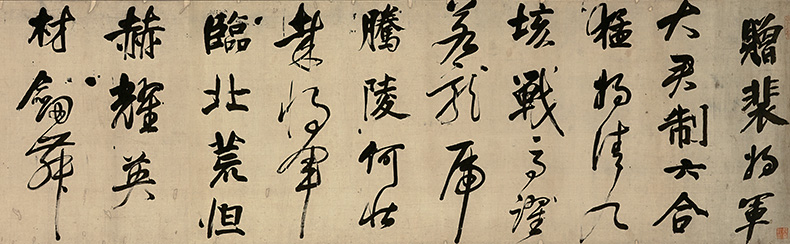 贈裴將軍
大君制六合
猛將清九
垓戰馬躍
若龍虎
騰陵何壯
哉將軍
臨北荒怛
赫耀英
材劍舞